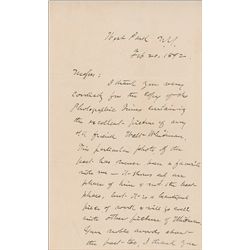 West Park N.Y.
Feb 20, 1892
I thank you very
cordially for the copy of the
Photographic Times containing
the excellent picture of my
old friend Walt Whitman.
This particular photo of the
poet has never been a favorite
with me — it shows only one
phase of him & not the best
phase, but it is a beautiful
piece of work &
with other pictures of Whitman.
Your noble words about
the poet too, I thank you